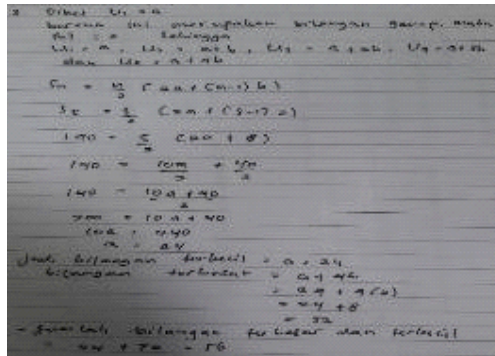 Diket U₁ = a
karena ini merupakan bilangan genap, maka
b = 2 Sehingga
U₁ = a, U₂ = a+b, U₃ = a+2b, U₄ = a+3b
dan U₅ = a+4b
Sn = n/2 (2a + (n-1) b)
S5 = 5/2 (2a + (5-1) 2)
140 = 5/2 (2a + 8)
140 = 10a/2 + 40/2
140 = 10a + 40 / 2
280 = 10a + 40
10a = 240
a = 24
Jadi bilangan terkecil = a = 24
bilangan terbesar = a + 4b
= 24 + 4(2)
= 24 + 8
= 32
- Jumlah bilangan terbesar dan terkecil
= 24 + 32 = 56